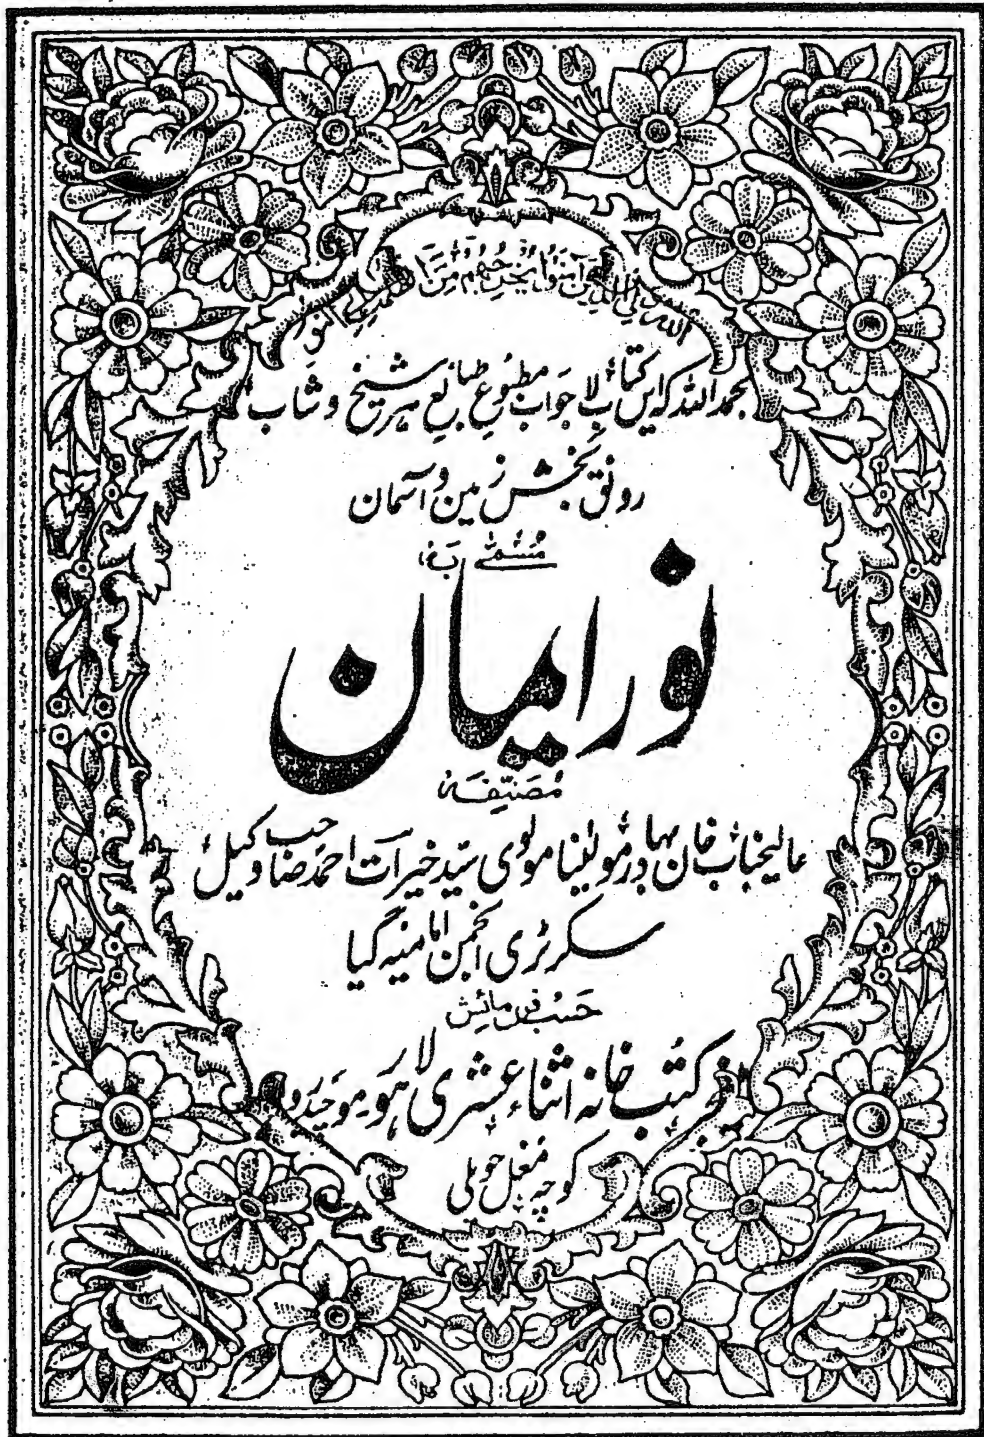 اللہ ولی الذین آمنوا یخرجھم من الظلمت الی النور
بحمد اللہ کہ ایں کتاب لاجواب مطبوع طبائع ہر شیخ و شاب
رونق بخش زمین و آسمان
مُسمّٰے بہ
نور ایمان
مُصَنِّفَہ
عالیجناب خان بہادر مولٰینا مولوی سید خیرات احمد صاحب وکیل
سکرٹری انجمن امامیہ گیا
حَسبِ فرمائش
کتب خانہ اثناء عشری لاہور موچیدروازہ
کوچہ مغل حویلی